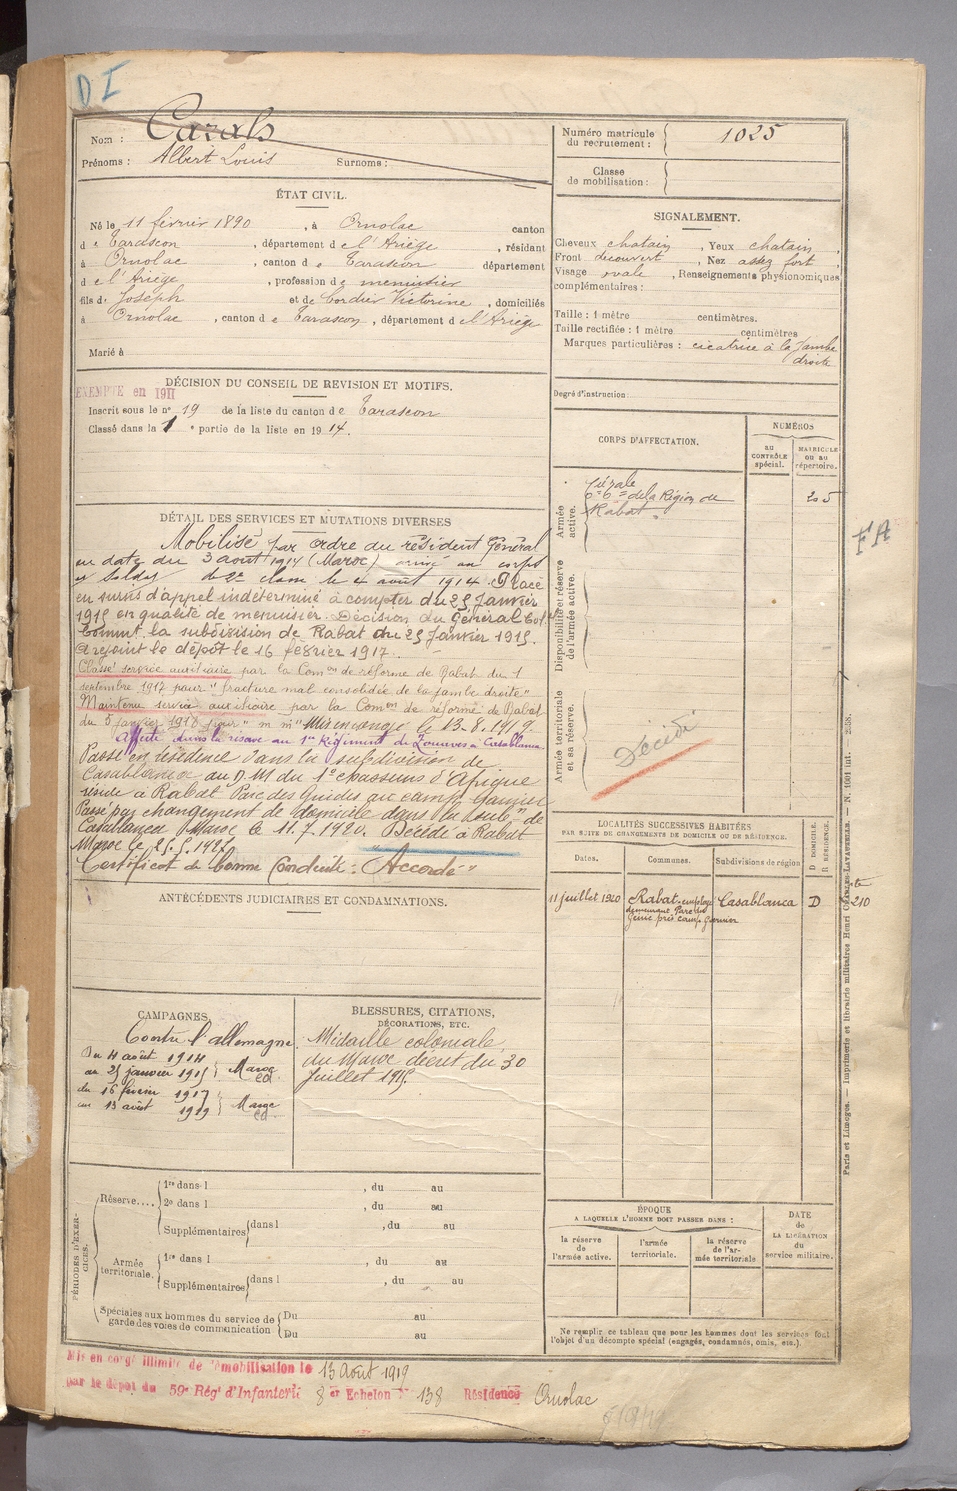 D I
Nom : Cazals
Prénoms : Albert Louis Surnoms :
Numéro matricule
du recrutement : 1025
Classe
de mobilisation :
ÉTAT CIVIL.
Né le 11 février 1890, à Ornolac canton
de Tarascon, département de l'Ariège, résidant
à Ornolac, canton de Tarascon département
de l'Ariège, profession de menuisier
fils de Joseph et de Cordier Victorine, domiciliés
à Ornolac, canton de Tarascon, département de l'Ariège
Marié à
SIGNALEMENT.
Cheveux chatain, Yeux chatain,
Front découvert, Nez assez fort,
Visage ovale, Renseignements physionomiques
complémentaires :
Taille : 1 mètre centimètres.
Taille rectifiée : 1 mètre centimètres
Marques particulières : cicatrice à la jambe
droite
Degré d'instruction
DÉCISION DU CONSEIL DE REVISION ET MOTIFS.
EXEMPTÉ en 1911
Inscrit sous le n° 19 de la liste du canton de Tarascon
Classé dans la 1e partie de la liste en 1914.
DÉTAIL DES SERVICES ET MUTATIONS DIVERSES
Mobilisé par ordre du résident Général
en date du 3 août 1914 (Maroc) arrivé au corps
et soldat de 2e classe le 4 août 1914. Placé
en sursis d'appel indéterminé à compter du 25 Janvier
1915 en qualité de menuisier. Décision du Général Col.
Commt la subdivision de Rabat du 25 Janvier 1915.
A rejoint le dépôt le 16 février 1917.
Classé service auxiliaire par la Comon de réforme de Rabat du 1
septembre 1917 pour "fracture mal consolidée de la jambe droite"
Maintenu service auxiliaire par la Comon de réforme de Rabat
du 5 janvier 1918 pour "m m" Mis en congé le 13.8.1919.
Affecté dans la réserve au 1er Régiment de Zouaves à Casablanca
Passé en résidence dans la subdivision de
Casablanca au D.M du 1e chasseurs d'Afrique
réside à Rabat Parc des Guides au camp Garnier
Passé par changement de domicile dans la subd. de
Casablanca Maroc le 11.7.1920. Décédé à Rabat
Maroc le
Certificat de bonne Conduite : "Accordé"
CORPS D'AFFECTATION.
NUMÉROS
AU
CONTRÔLE
spécial.
MATRICULE
OU AU
répertoire.
Armée
active.
de la Région de 205
Rabat
Disponibilité et réserve
de l'armée active.
Armée territoriale
et sa réserve.
Décédé
FA
ANTÉCÉDENTS JUDICIAIRES ET CONDAMNATIONS.
LOCALITÉS SUCCESSIVES HABITÉES
PAR SUITE DE CHANGEMENTS DE DOMICILE OU DE RÉSIDENCE.
Dates. Communes. Subdivisions de région
D DOMICILE.
R RÉSIDENCE.
11 juillet 1920 Rabat employé Casablanca D 210
demeurant Parc du
Génie près camp Garnier
CAMPAGNES.
Contre l'allemagne.
Du 4 août 1914
au 25 janvier 1915 } Maroc
du 16 février 1917
au 13 août 1919 } Maroc
BLESSURES, CITATIONS,
DÉCORATIONS, ETC.
Médaille coloniale
du Maroc décret du 30
Juillet 1915.
PÉRIODES D'EXERCICES.
Réserve.... 1re dans l , du au
2e dans l , du au
Supplémentaires dans l , du au
Armée
territoriale. 1re dans l , du au
Supplémentaires dans l , du au
Spéciales aux hommes du service de
garde des voies de communication Du au
Du au
ÉPOQUE
A LAQUELLE L'HOMME DOIT PASSER DANS :
la réserve
de
l'armée active.
l'armée
territoriale.
la réserve
de l'ar-
mée territoriale
DATE
de
LA LIBÉRATION
du
service militaire.
Ne remplir ce tableau que pour les hommes dont les services font
l'objet d'un décompte spécial (engagés, condamnés, omis, etc.).
Paris et Limoges. — Imprimerie et librairie militaires Henri CHARLES-LAVAUZELLE. — N. 1001 int. 2558.
Mis en congé illimité de démobilisation le 13 Août 1919
par le dépôt du 59e Régt d'Infanterie 8er Echelon N° 138 Résidence Ornolac